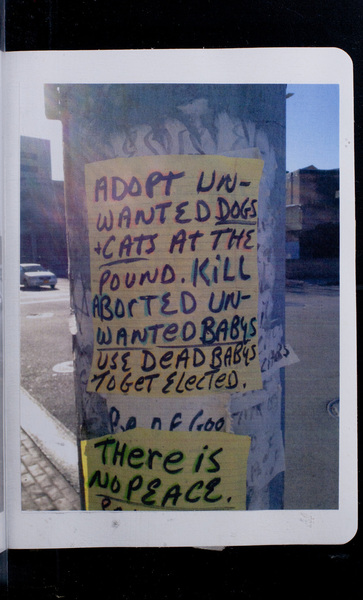 ADOPT UN-
WANTED DOGS
+CATS AT THE
POUND. KiLL
ABORTED UN-
WANTED BABYS
USE DEAD BABYS
TO GET ELECTED.
THERE iS
NO PEACE.